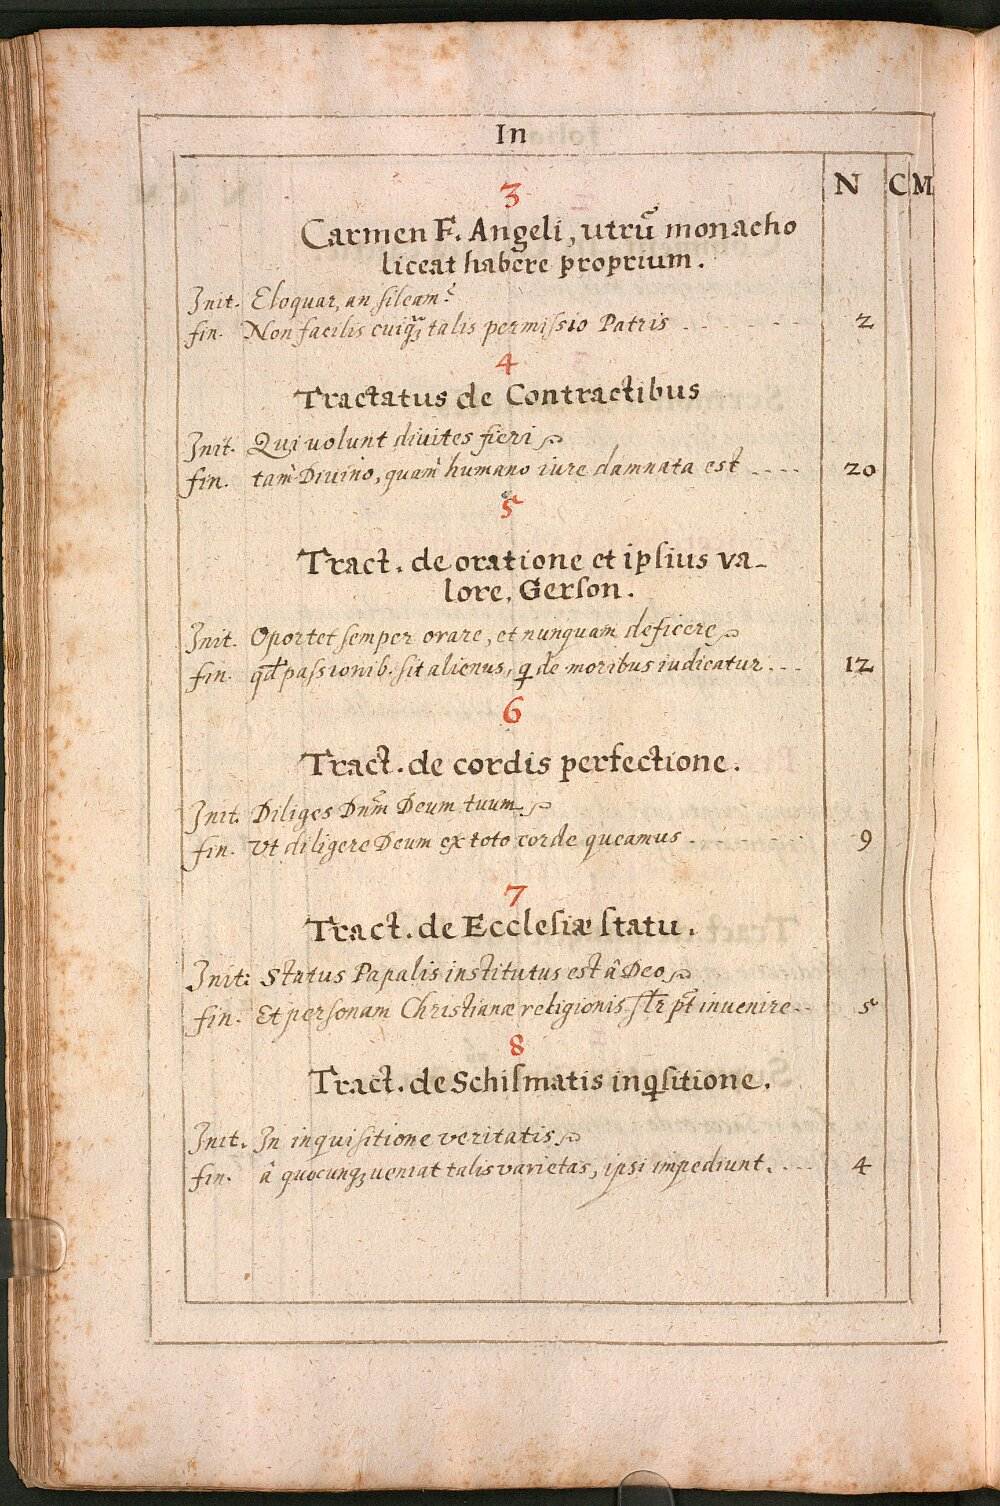 In
N C M
3
Carmen F. Angeli, utrũ monacho
liceat habere proprium.
Init. Eloquar, an ſileam?
fin. Non facilis cuiqꝫ talis permiſsio Patris 2
4
Tractatus de Contractibus
Init. Qui uolunt diuites fieri
fin. tam̃ Diuino, quam̃ humano iure damnata est 20
5
Tract. de oratione et ipſius va-
lore, Gerſon.
Init. Oportet ſemper orare, et nunquam deficere
fin. qđ paſsionib. ſit alienus, q̱ de moribus iudicatur 12
6
Tract. de cordis perfectione.
Init. Diliges Dnm̃ Deum tuum
fin. Vt diligere Deum ex toto corde queamus 9
7
Tract. de Eccleſiæ ſtatu.
Init: Status Papalis institutus est â Deo
fin. Et perſonam Chriſtianæ religionis ſlr̃ pt̃ inuenire 5
8
Tract. de Schiſmatis inqſitione.
Init. In inquiſitione veritatis
fin. â quocunqꝫ ueniat talis varietas, ipsi impediunt. 4